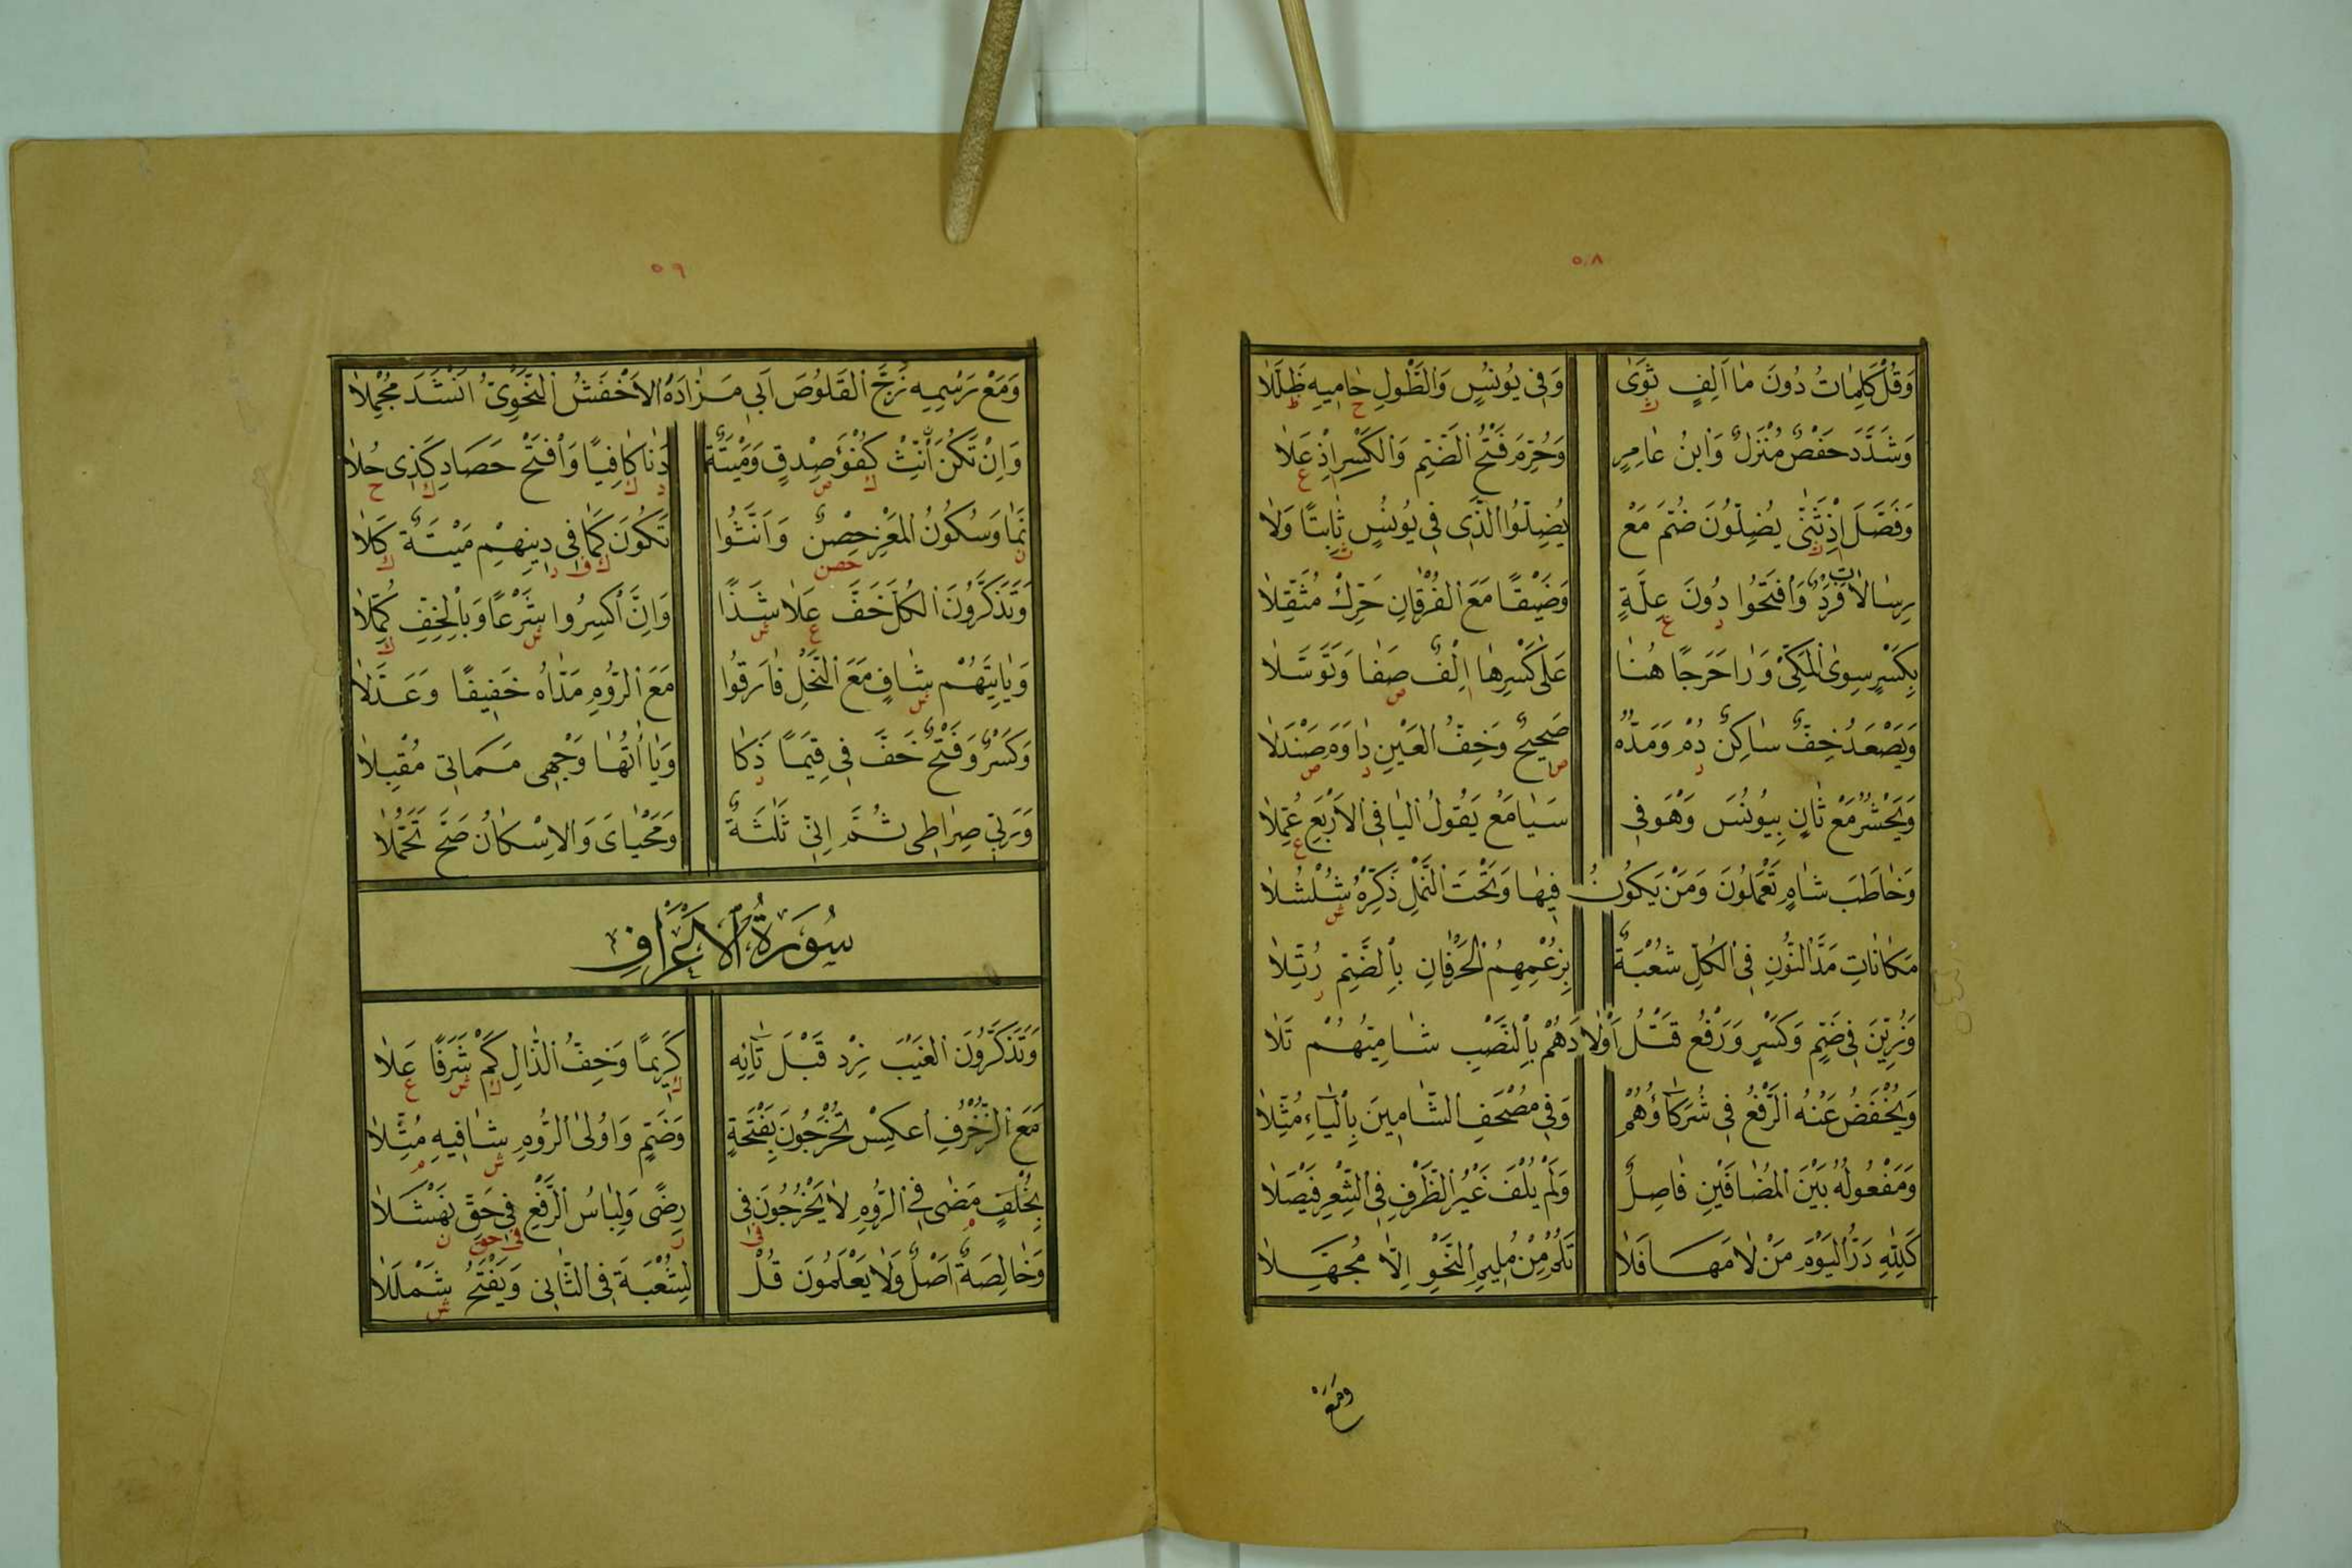 ٥٨
وَقُلْ كَلِمَاتُ دُونَ مَا اَلِفٍ ثَوٰى وَفِى يُونُسٍ وَالطَّوْلِ حَامِيهِ ظَلَّلَا
وَشَدَّدَ حَفْصٌ مُنْزَلٌ وَابْنُ عَامِرٍ وَحُرِّمَ فَتْحُ الضَّمِّ وَالكَسْرِ اِذْ عَلَا
وَفَصَّلَ اِذْ ثَنّٰى يُضِلُّونَ ضُمَّ مَعْ يُضِلُّوا الَّذِى فِى يُونُسٍ ثَابِتًا وَلَا
رِسَالَاتِ فَرْدٌ وَافْتَحُوا دُونَ عِلَّةٍ وَضَيْقًا مَعَ الفُرْقَانِ حَرِّكْ مُثَقِّلَا
بِكَسْرٍ سِوَى المَكِّىْ وَرَا حَرَجًا هُنَا عَلٰى كَسْرِهَا اِلْفٌ صَفَا وَتَوَسَّلَا
وَيَصْعَدُ خِفٌّ سَاكِنٌ دُمْ وَمَدُّهُ صَحِيحٌ وَخِفُّ العَيْنِ دَاوَمَ صَنْدَلَا
وَيَحْشُرُ مَعْ ثَانٍ بِيُونُسَ وَهْوَ فِى سَبَا مَعْ يَقُولُ اليَا فِى الاَرْبَعِ عُمِّلَا
وَخَاطَبَ شَامٍ تَعْمَلُونَ وَمَنْ يَكُونُ فِيهَا وَتَحْتَ النَّمْلِ ذَكِّرْهُ شُلْشُلَا
مَكَانَاتِ مَدَّ النُّونَ فِى الكُلِّ شُعْبَةٌ بِزُعْمِهِمُ الحَرْفَانِ بِالضَّمِّ رُتِّلَا
وَزُيِّنَ فِى ضَمٍّ وَكَسْرٍ وَرَفْعُ قَتْلُ اَوْلَادَهُمْ بِالنَّصْبِ شَامِيُّهُمْ تَلَا
وَيُخْفَضُ عَنْهُ الرَّفْعُ فِى شُرَكَاؤُهُمْ وَفِى مُصْحَفِ الشَّامِينَ بِالْيَاءِ مُثِّلَا
وَمَفْعُولُهُ بَيْنَ المُضَافَيْنِ فَاصِلٌ وَلَمْ يُلْفَ غَيْرُ الظَّرْفِ فِى الشِّعْرِ فَيْصَلَا
كَلِلّٰهِ دَرُّ اليَوْمَ مَنْ لَامَهَا فَلَا تَلُمْ مِنْ مُلِيمِ النَّحْوِ اِلَّا مُجَهِّلَا
ومع
٥٩
وَمَعْ رَسْمِهِ زَجَّ القَلُوصَ اَبِى مَزَادَةَ الاَخْفَشُ النَّحْوِىُّ اَنْشَدَ مُجْمِلَا
وَاِنْ تَكُنَ اَنِّثْ كُفْؤَ صِدْقٍ وَمَيْتَةٌ دَنَا كَافِيًا وَافْتَحْ حَصَادِ كَذِى حُلَا
نَمَا وَسُكُونُ المَعْزِ حِصْنٌ وَاَنَّثُوا تَكُونَ كَمَا فِى دِينِهِمْ مَيْتَةٌ كَلَا
وَتَذَكَّرُونَ الكُلَّ خَفَّ عَلَا شَذًا وَاِنَّ اكْسِرُوا شَرْعًا وَبِالْخِفِّ كُمِّلَا
وَيَاتِيَهُمْ شَافٍ مَعَ النَّحْلِ فَارَقُوا مَعَ الرُّومِ مَدَّاهُ خَفِيفًا وَعَدَّلَا
وَكَسْرٌ وَفَتْحٌ خَفَّ فِى قِيَمًا ذَكَا وَيَا آتُهَا وَجْهِى مَمَاتِى مُقْبِلَا
وَرَبِّى صِرَاطِى ثُمَّ اِنِّى ثَلٰثَةٌ وَمَحْيَاىَ وَالاِسْكَانُ صَحَّ تَحَمُّلَا
سُورَةُ الاَعْرَافِ
وَتَذَكَّرُونَ الغَيْبَ زِدْ قَبْلَ تَائِهِ كَرِيمًا وَخِفُّ الذَّالِ كَمْ شَرَفًا عَلَا
مَعَ الزُّخْرُفِ اعْكِسْ تُخْرَجُونَ بِفَتْحَةٍ وَضَمٍّ وَاُولَى الرُّومِ شَافِيهِ مُثِّلَا
بِخُلْفٍ مَضٰى فِى الرُّومِ لَا يَخْرُجُونَ فِى رِضًى وَلِبَاسُ الرَّفْعِ فِى حَقِّ نَهْشَلَا
وَخَالِصَةٌ اَصْلٌ وَلَا يَعْلَمُونَ قُلْ لِشُعْبَةَ فِى الثَّانِى وَيُفْتَحُ شَمْلَلَا